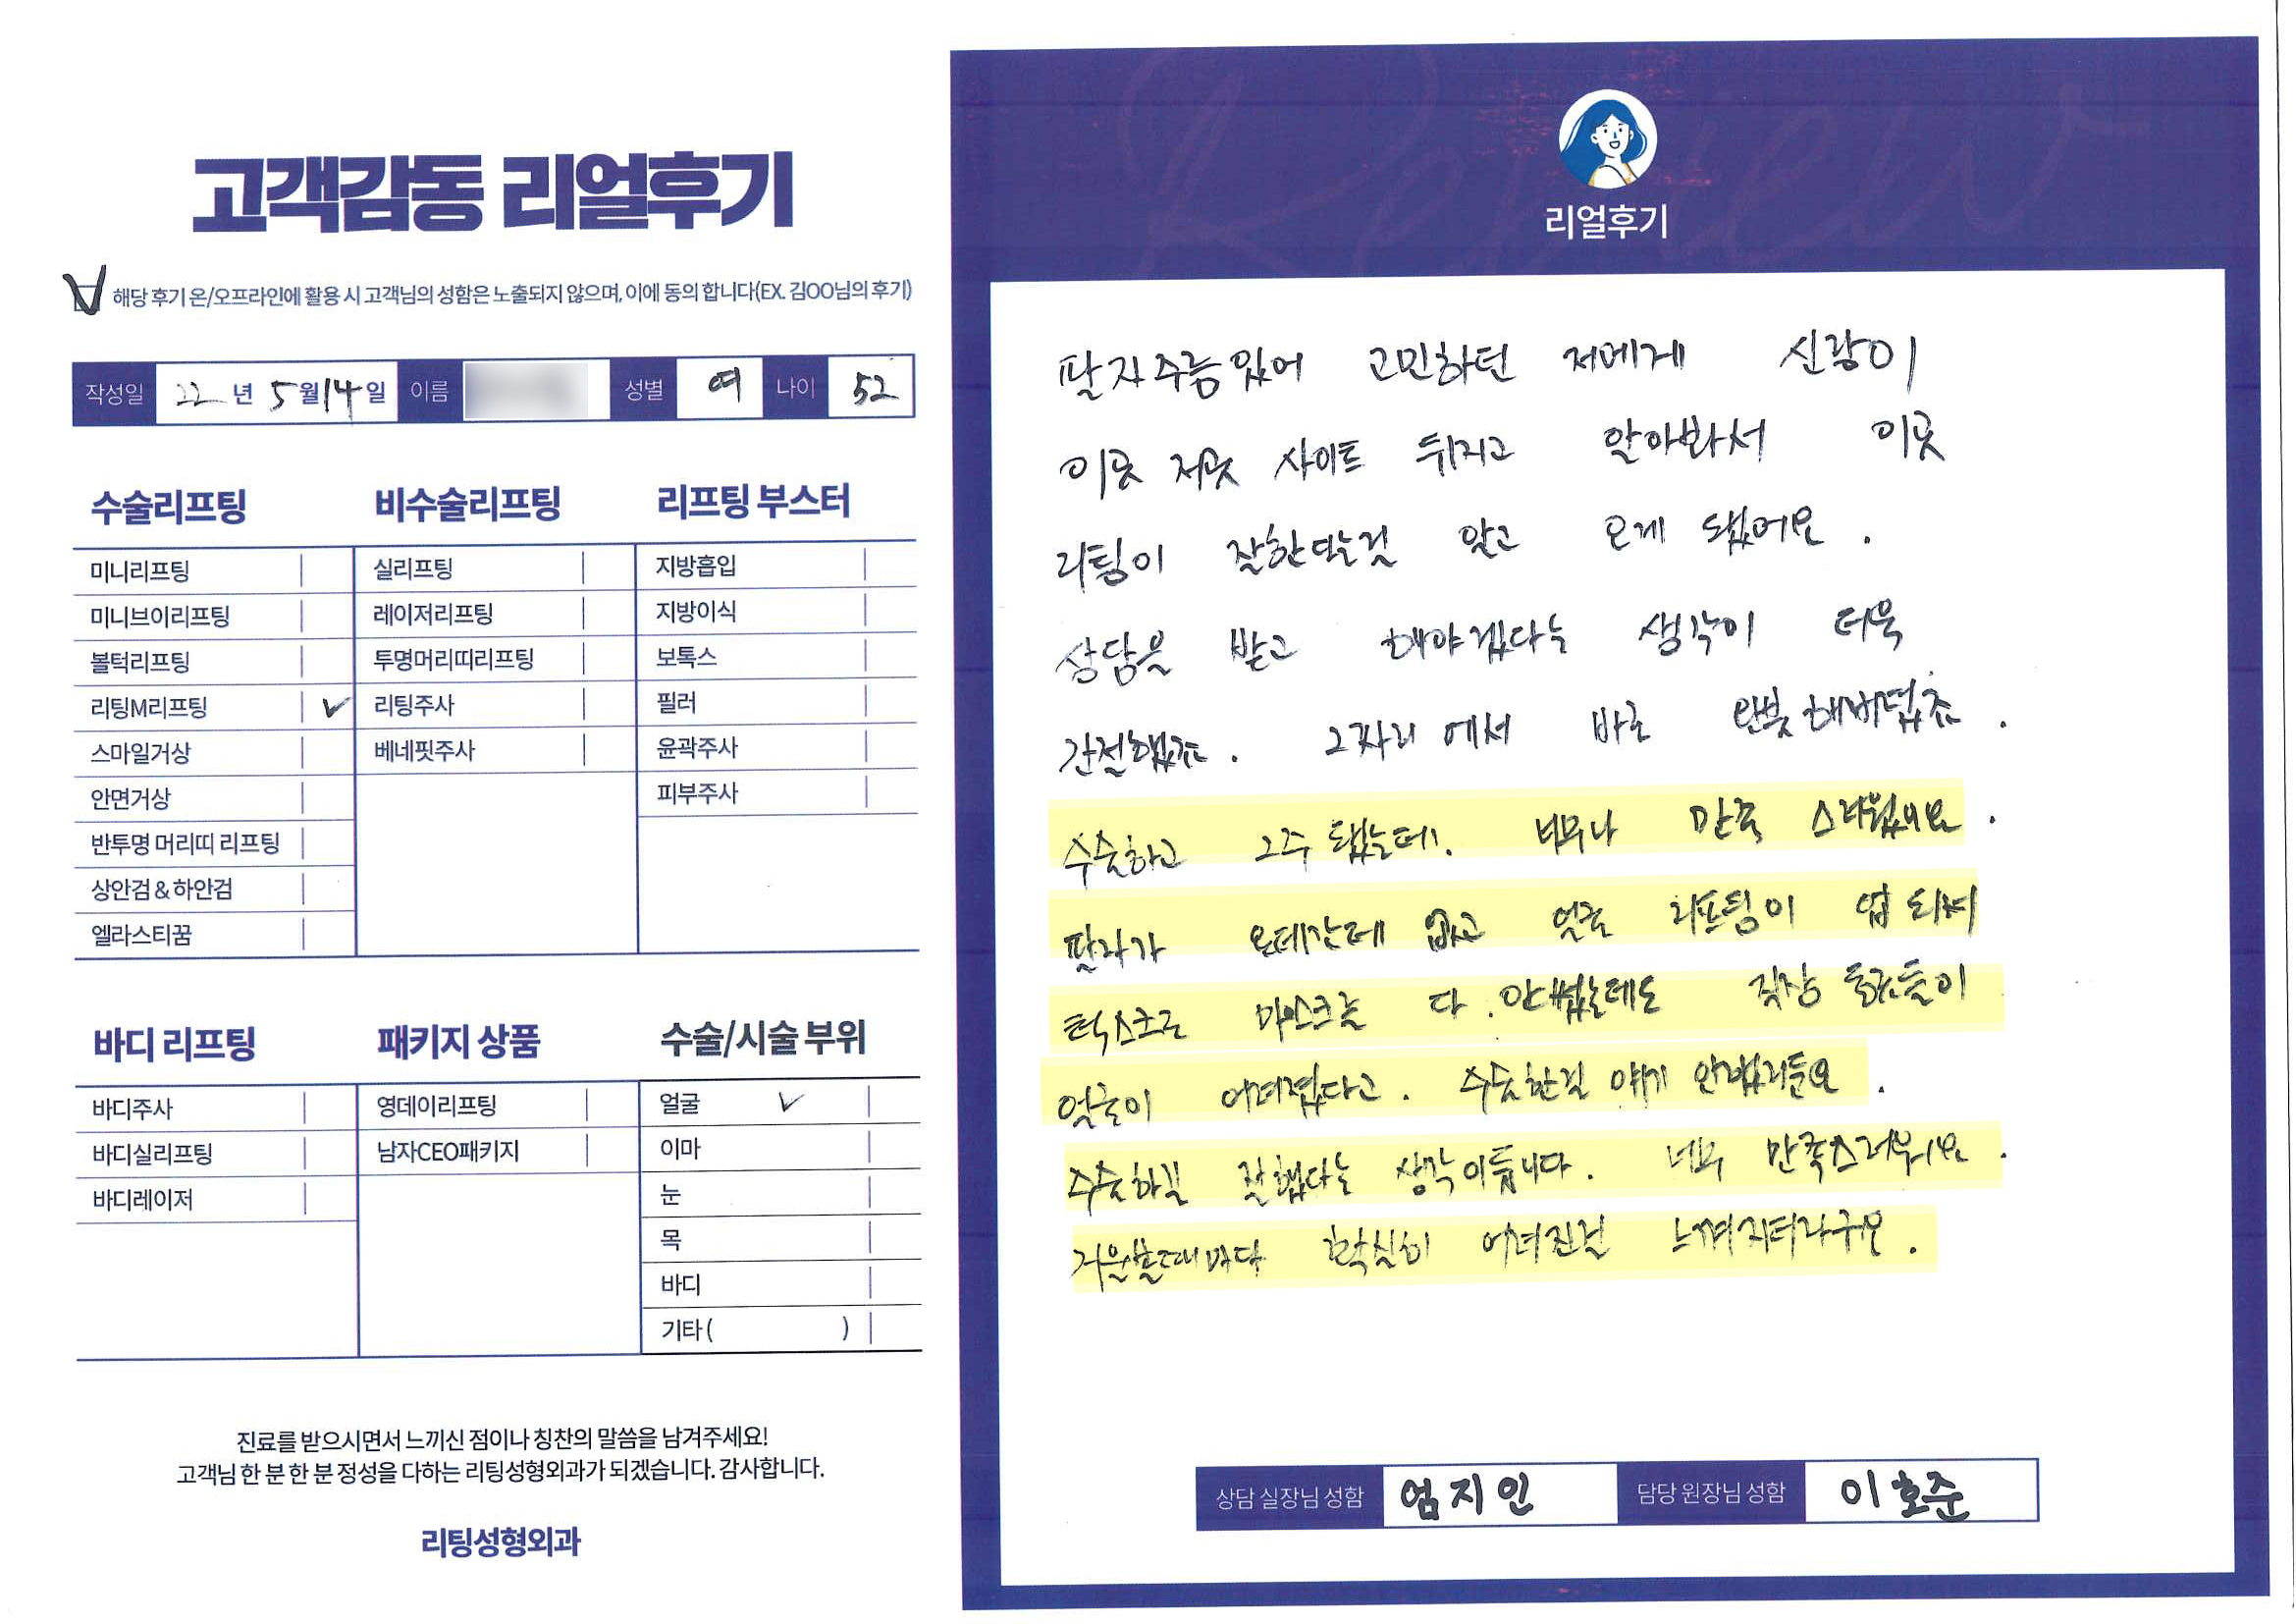 고객감동 리얼후기
해당 후기 온/오프라인에 활용 시 고객님의 성함은 노출되지 않으며, 이에 동의 합니다(EX. 김OO님의 후기)
작성일 22년 5월 14일 이름 성별 여 나이 52
수술리프팅
미니리프팅
미니브이리프팅
볼턱리프팅
리팅M리프팅
스마일거상
안면거상
반투명 머리띠 리프팅
상안검 & 하안검
엘라스티꿈
비수술리프팅
실리프팅
레이저리프팅
투명머리띠리프팅
리팅주사
베네핏주사
리프팅 부스터
지방흡입
지방이식
보톡스
필러
윤곽주사
피부주사
바디 리프팅
바디주사
바디실리프팅
바디레이저
패키지 상품
영데이리프팅
남자CEO패키지
수술/시술 부위
얼굴
이마
눈
목
바디
기타 ( )
진료를 받으시면서 느끼신 점이나 칭찬의 말씀을 남겨주세요!
고객님 한 분 한 분 정성을 다하는 리팅성형외과가 되겠습니다. 감사합니다.
리팅성형외과
Review
리얼후기
팔자주름있어 고민하던 저에게 신랑이
이곳 저곳 사이트 뒤지고 알아봐서 이곳
리팅이 잘한다는걸 알고 오게 됐어요.
상담을 받고 해야겠다는 생각이 더욱
간절했죠. 그자리에서 바로 예약해버렸죠.
수술하고 2주 됐는데. 너무나 만족 스러웠어요.
팔자가 온데간데 없고 얼굴 리프팅이 업 되서
턱스크로 마스크를 다.안썼는데도 직장 동료들이
얼굴이 어려졌다고. 수술한걸 얘기 안했거든요.
수술하길 잘했다는 생각이듭니다. 너무 만족스러워요.
거울볼때마다 확실히 어려진걸 느껴지더라구요.
상담 실장님 성함 엄지인 담당 원장님 성함 이호준